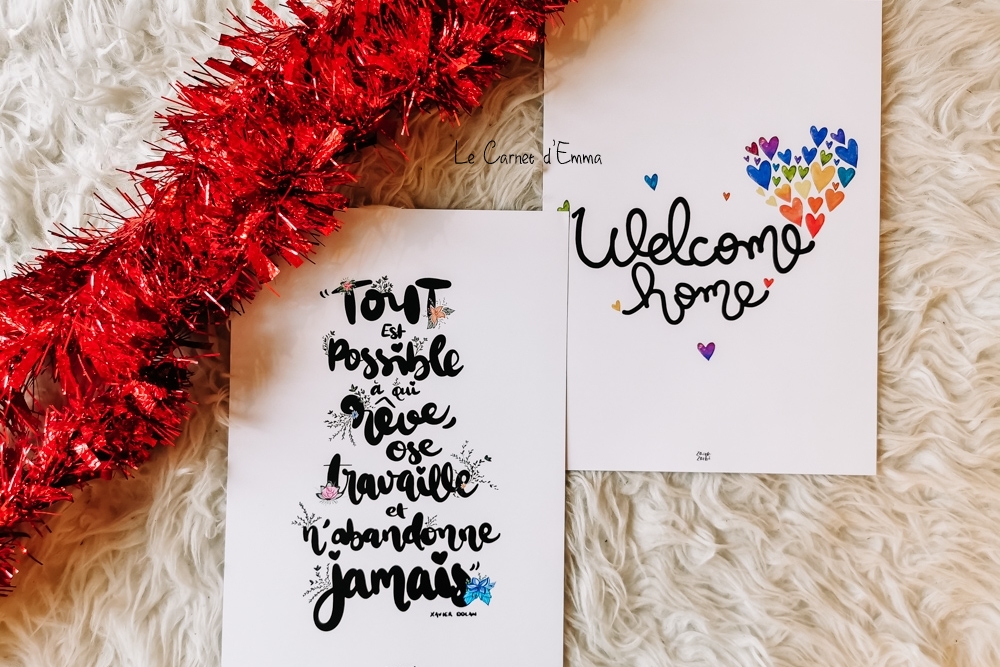 Le Carnet d'Emma
Welcome
home
"Tout
Est
Possible
à qui
rêve,
ose
travaille
et
n'abandonne
jamais"
XAVIER DOLAN